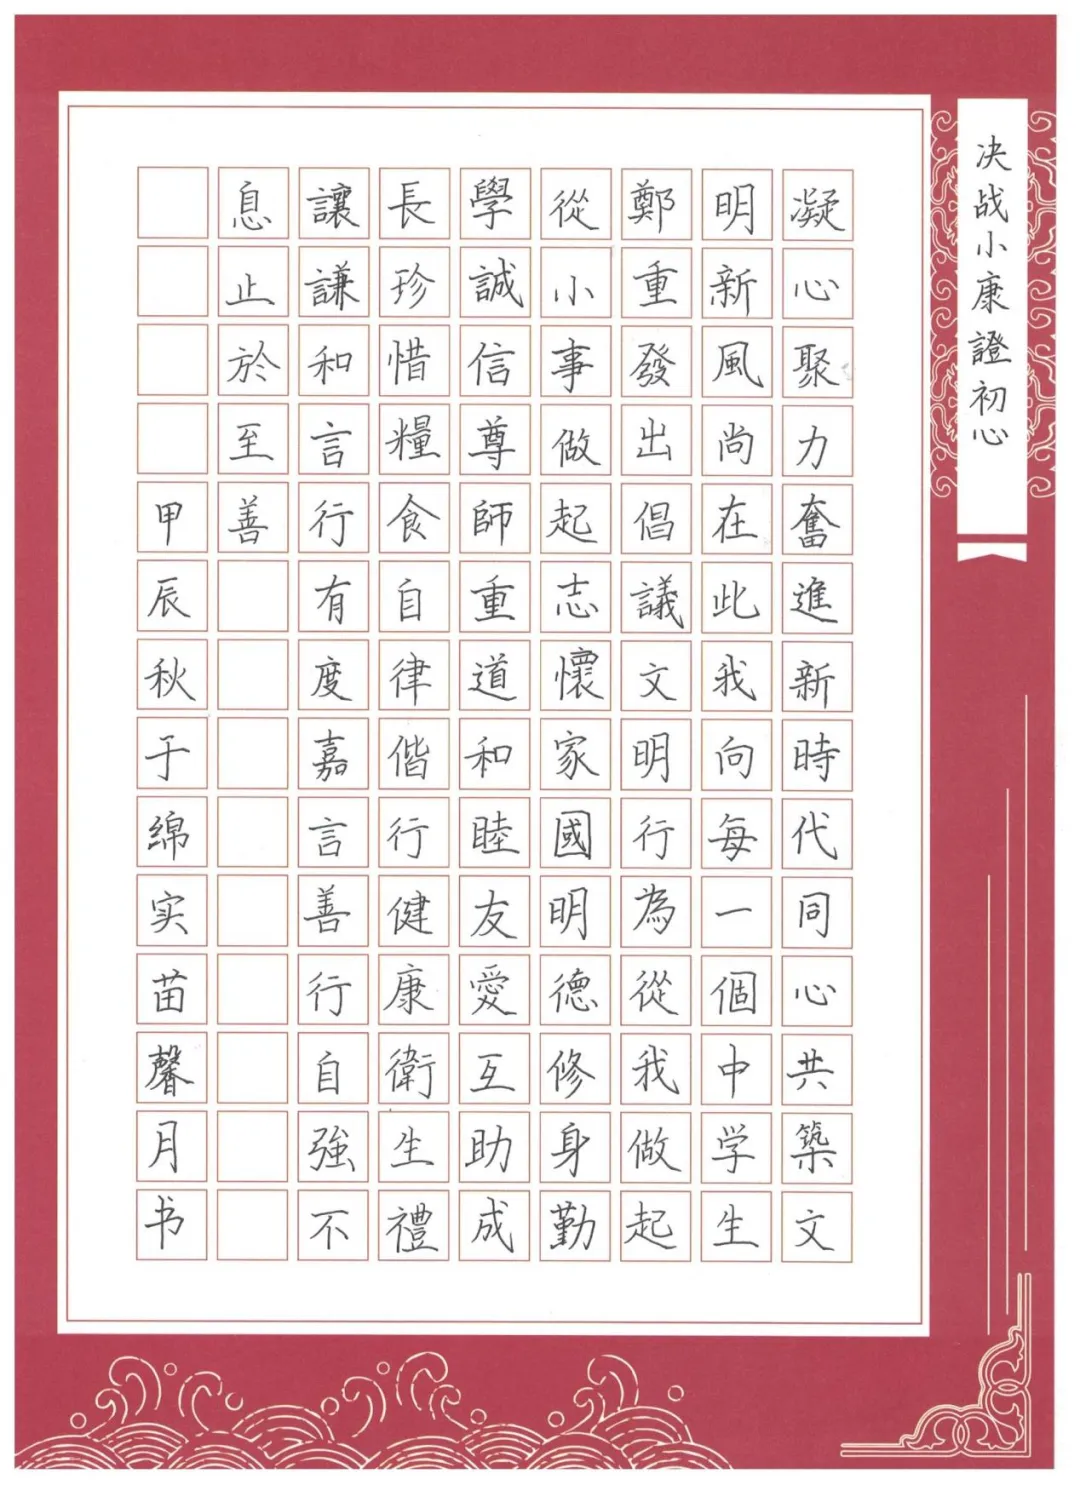 决战小康證初心
凝心聚力奮進新時代同心共築文
明新風尚在此我向每一個中学生
鄭重發出倡議文明行為從我做起
從小事做起志懷家國明德修身勤
學誠信尊師重道和睦友愛互助成
長珍惜糧食自律偕行健康衛生禮
讓謙和言行有度嘉言善行自強不
息止於至善
甲辰秋于綿实苗馨月书